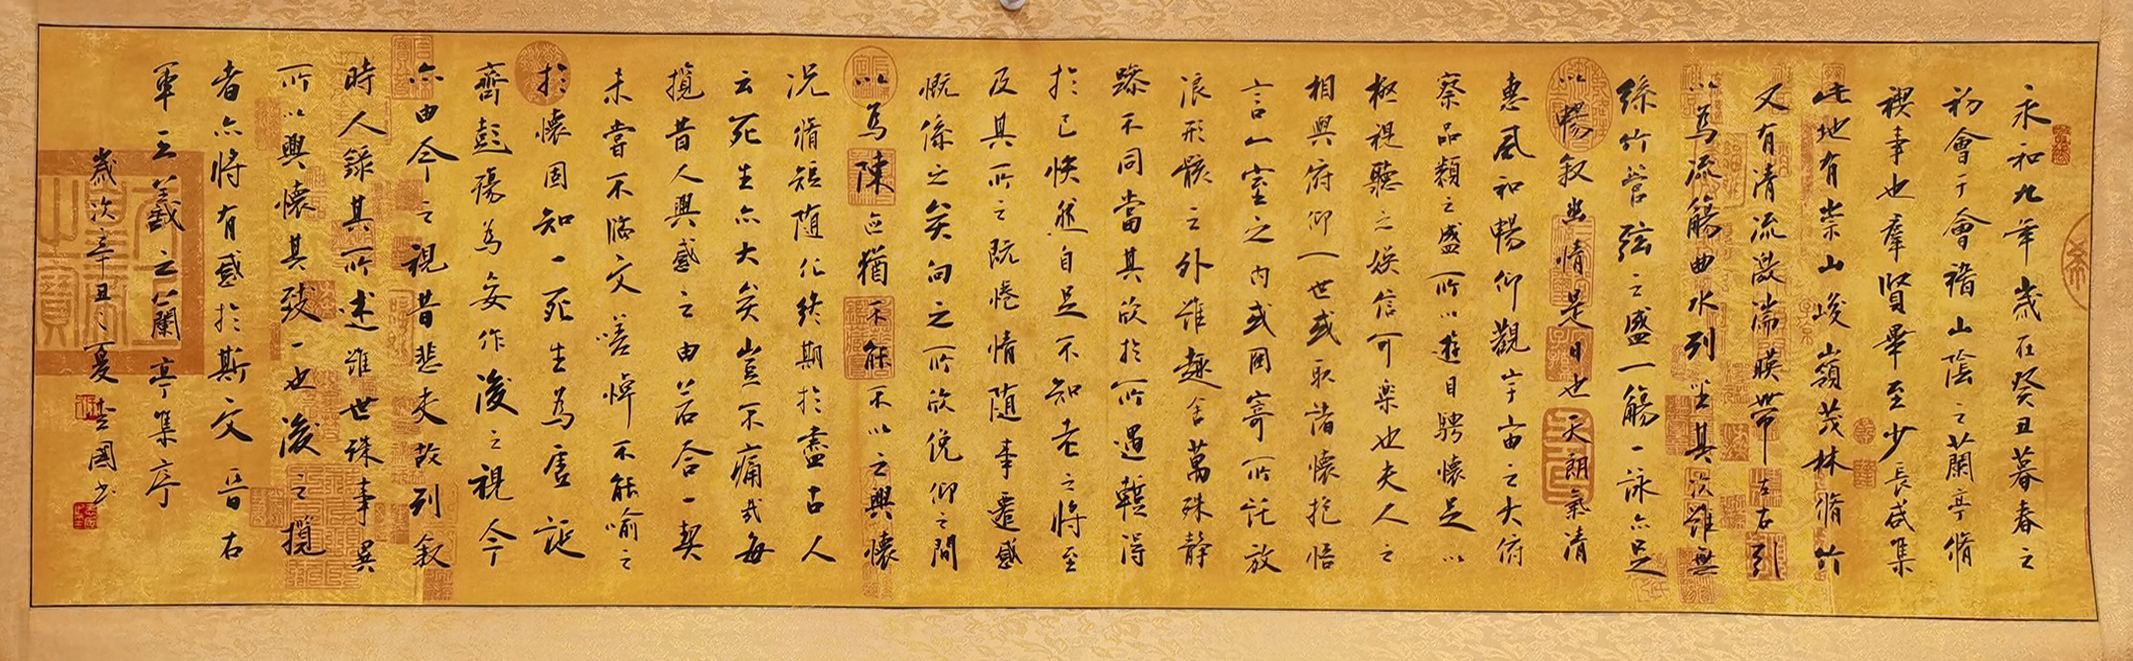 永和九年歲在癸丑暮春之
初會于會稽山陰之蘭亭脩
禊事也羣賢畢至少長咸集
此地有崇山峻嶺茂林脩竹
又有清流激湍暎帶左右引
以為流觴曲水列坐其次雖無
絲竹管弦之盛一觴一詠亦足
以暢叙幽情是日也天朗氣清
惠風和暢仰觀宇宙之大俯
察品類之盛所以遊目騁懷足以
極視聽之娛信可樂也夫人之
相與俯仰一世或取諸懷抱悟
言一室之內或因寄所託放
浪形骸之外雖趣舍萬殊静
躁不同當其欣於所遇暫得
於己怏然自足不知老之將至
及其所之既惓情随事遷感
慨係之矣向之所欣俛仰之間
以為陳迹猶不能不以之興懷
况脩短随化終期於盡古人
云死生亦大矣豈不痛哉每
攬昔人興感之由若合一契
未嘗不臨文嗟悼不能喻之
於懷固知一死生為虛誕
齊彭殤為妄作後之視今
亦由今之視昔悲夫故列叙
時人錄其所述雖世殊事異
所以興懷其致一也後之攬
者亦將有感於斯文 晉右
軍王羲之蘭亭集序
歲次辛丑之夏 國书